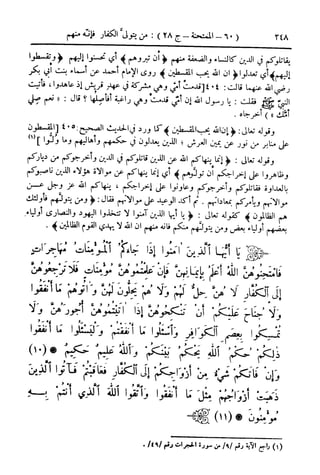 ٢٤٨ (٦٠ - الممتحنة - ج ٢٨) : من يتولّى الكفار فإنه منهم
يقاتلوكم في الدين كالنساء والضعفة منهم ﴿أن تبروهم﴾ أي تحسنوا إليهم ﴿وتقسطوا
إليهم﴾ أي تعدلوا ﴿ان الله يحب المقسطين﴾ روى الإمام أحمد عن أسماء بنت أبي بكر
رضي الله عنهما قالت: ٤٠٤[قدمت أمي وهي مشركة في عهد قريش إذ عاهدوا، فأتيت
النبي فقلت: يا رسول الله إن أمي قدمت وهي راغبة أفأصلها؟ قال: «نعم صلي
أمك» ] أخرجاه .
وقوله تعالى: ﴿إن الله يحب المقسطين﴾ كما ورد في الحديث الصحيح: ٤٠٥[المقسطون
على منابر من نور عن يمين العرش، الذين يعدلون في حكمهم وأهاليهم وما ولوا] (١)
وقوله تعالى: ﴿إنما ينهاكم الله عن الذين قاتلوكم في الدين وأخرجوكم من دياركم
وظاهروا على إخراجكم أن تولوهم﴾ أي إنما ينهاكم عن موالاة هؤلاء الذين ناصبوكم
بالعداوة فقاتلوكم وأخرجوكم وعاونوا على إخراجكم، ينهاكم الله عز وجل عن
موالاتهم ويأمركم بمعاداتهم. ثم أكد الوعيد على موالاتهم فقال: ﴿ومن يتولهم فأولئك
هم الظالمون﴾ كقوله تعالى: ﴿يا أيها الذين آمنوا لا تتخذوا اليهود والنصارى أولياء
بعضهم أولياء بعض ومن يتولهم منكم فانه منهم ان الله لا يهدي القوم الظالمين﴾ .
يَا أَيُّهَا الَّذِينَ آمَنُوا إِذَا جَاءَكُمُ الْمُؤْمِنَاتُ مُهَاجِرَاتٍ
فَامْتَحِنُوهُنَّ اللَّهُ أَعْلَمُ بِإِيمَانِهِنَّ فَإِنْ عَلِمْتُمُوهُنَّ مُؤْمِنَاتٍ فَلَا تَرْجِعُوهُنَّ
إِلَى الْكُفَّارِ لَا هُنَّ حِلٌّ لَهُمْ وَلَا هُمْ يَحِلُّونَ لَهُنَّ وَآتُوهُمْ مَا أَنْفَقُوا
وَلَا جُنَاحَ عَلَيْكُمْ أَنْ تَنْكِحُوهُنَّ إِذَا آتَيْتُمُوهُنَّ أُجُورَهُنَّ وَلَا
تُمْسِكُوا بِعِصَمِ الْكَوَافِرِ وَاسْأَلُوا مَا أَنْفَقْتُمْ وَلْيَسْأَلُوا مَا أَنْفَقُوا
ذَلِكُمْ حُكْمُ اللَّهِ يَحْكُمُ بَيْنَكُمْ وَاللَّهُ عَلِيمٌ حَكِيمٌ * (١٠)
وَإِنْ فَاتَكُمْ شَيْءٌ مِنْ أَزْوَاجِكُمْ إِلَى الْكُفَّارِ فَعَاقَبْتُمْ فَآتُوا الَّذِينَ
ذَهَبَتْ أَزْوَاجُهُمْ مِثْلَ مَا أَنْفَقُوا وَاتَّقُوا اللَّهَ الَّذِي أَنْتُمْ بِهِ
مُؤْمِنُونَ * (١١)
(١) راجع الآية رقم /٩/ من سورة الحجرات رقم /٤٩/ .